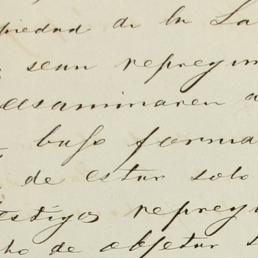 piedad de la La
sean repregun
esaminaren a
bajo forma
de estar solo
estigos repregu
ho de objetar s